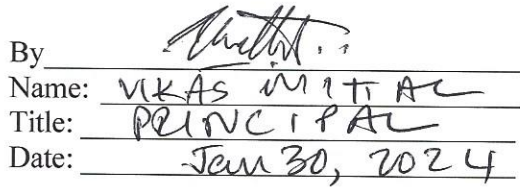 By
Name: VIKAS MITTAL
Title: PRINCIPAL
Date: Jan 30, 2024